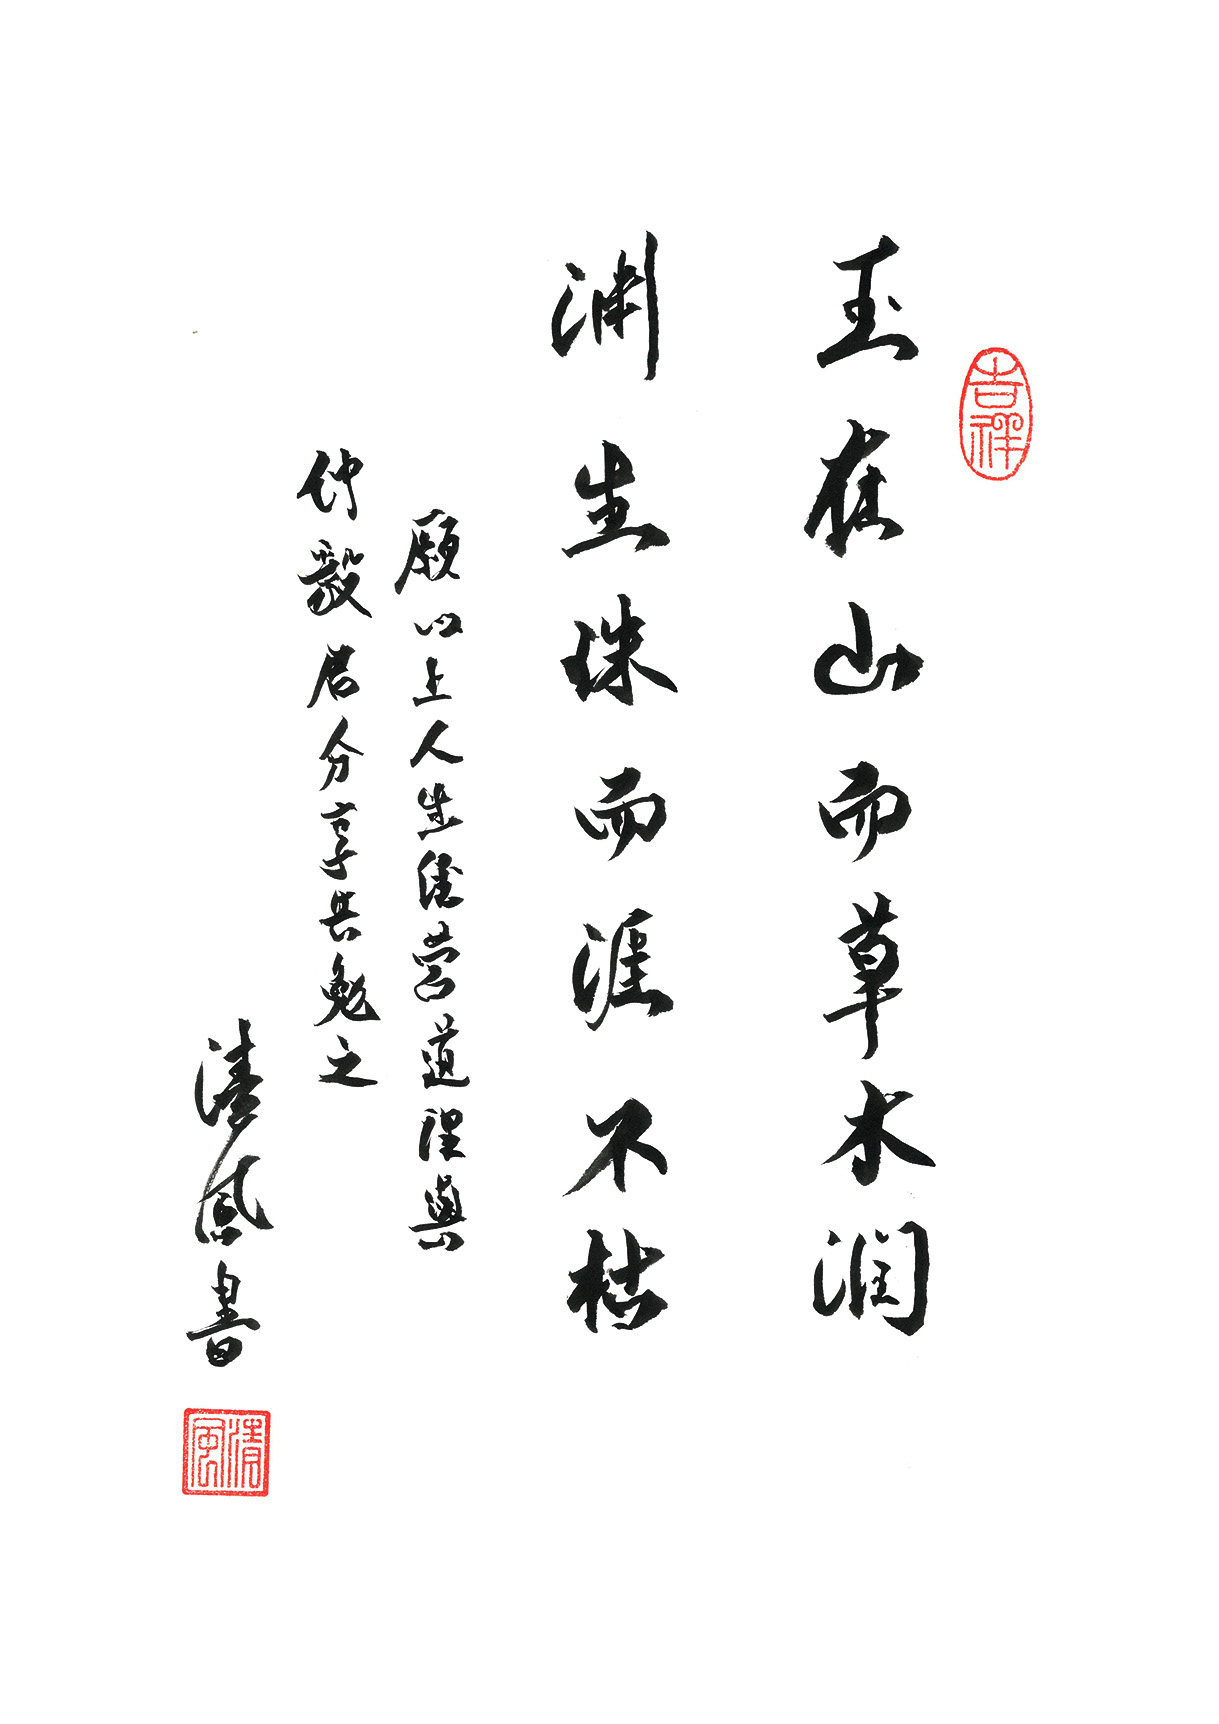 吉祥
玉在山而草木潤
淵生珠而涯不枯
願以上人生經營道理與
仲毅君分享共勉之
清風書
清風